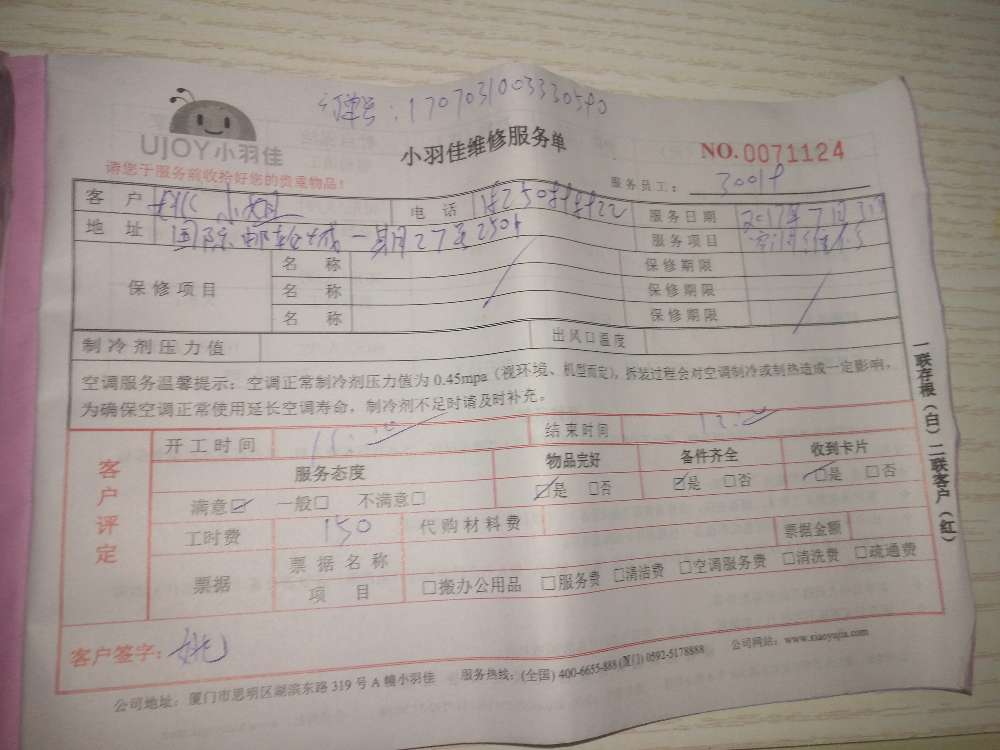 订单号：170703100333 0540
UJOY小羽佳
小羽佳维修服务单
NO.0071124
请您于服务前收拾好您的贵重物品！
服务员工：
客户 小姐 电话 服务日期 2017年7月3日
地址 国际邮轮城一期27 服务项目
保修项目 名称 保修期限
名称 保修期限
名称 保修期限
制冷剂压力值 出风口温度
空调服务温馨提示：空调正常制冷剂压力值为0.45mpa（视环境、机型而定），拆装过程会对空调制冷或制热造成一定影响，
为确保空调正常使用延长空调寿命，制冷剂不足时请及时补充。
客户评定
开工时间 结束时间
服务态度 物品完好 备件齐全 收到卡片
满意☑ 一般□ 不满意□ ☑是 □否 ☑是 □否 ☑是 □否
工时费 150 代购材料费
票据 票据名称 票据金额
项目 □搬办公用品 □服务费 □清洁费 □空调服务费 □清洗费 □疏通费
客户签字：姚
公司地址：厦门市思明区湖滨东路319号A幢小羽佳 服务热线：(全国) 400-6655-888 (厦门) 0592-5178888 公司网站：www.xiaoyujia.com
一联存根（白）二联客户（红）